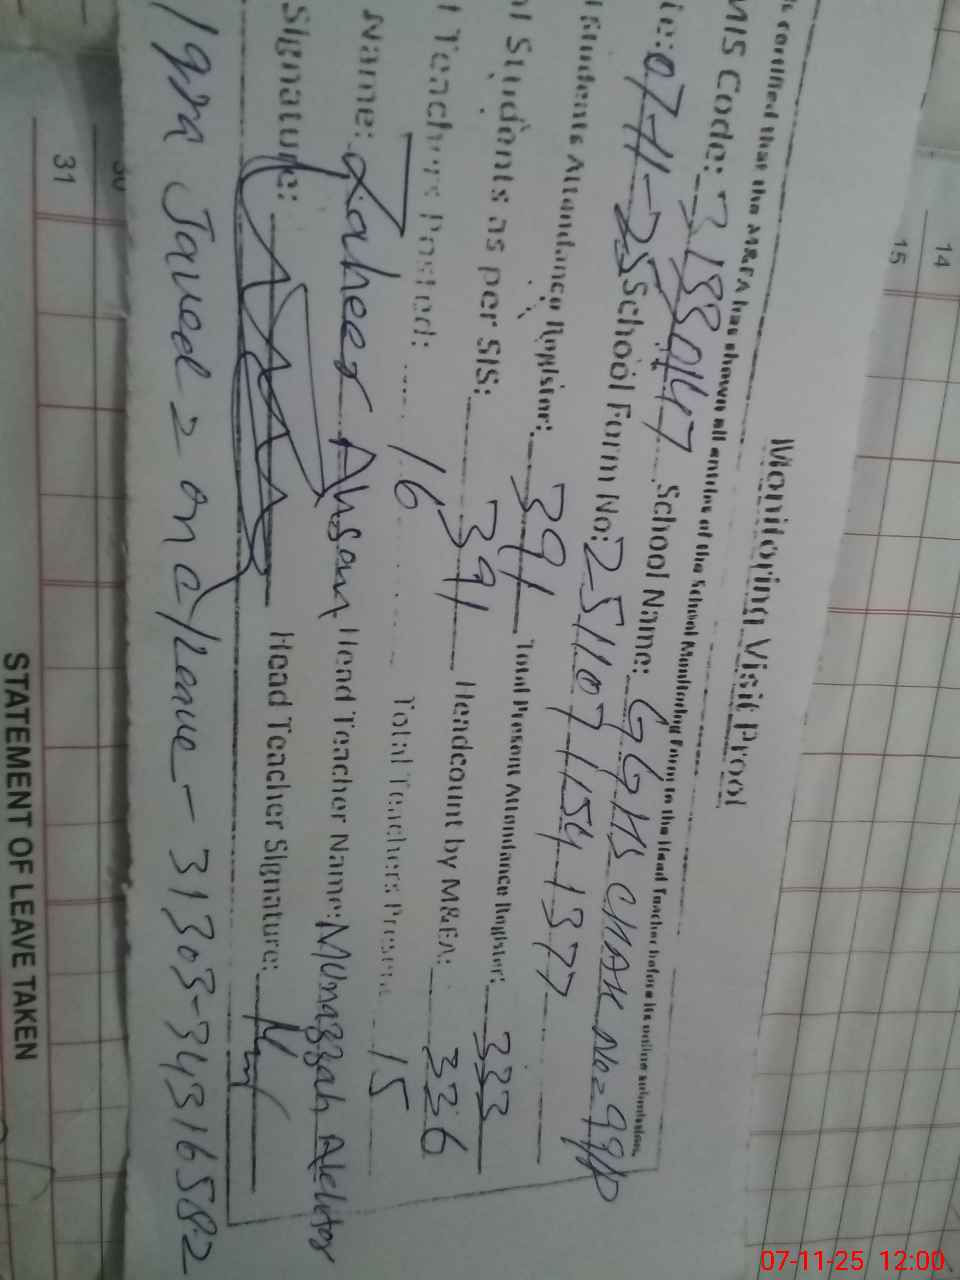 Monitoring Visit Proof
certified that the M&EA has shown all entries of the School Monitoring Form to the Head Teacher before its online submission.
MIS Code: 31330147 School Name: GGHS CHAK No = 99/P
07-11-25 School Form No: 251107115413 77
Students Attendance Register: 391 Total Present Attendance Register: 333
Students as per SIS: 391 Headcount by M&EA: 336
Teachers Posted: 16 Total Teachers Present 15
Name: Zaheer Ahsan Head Teacher Name: Munazzah
Signature: Head Teacher Signature:
Iqra Javed = on c/leave - 31303-3431658-2
STATEMENT OF LEAVE TAKEN
30
31
14
15
07-11-25 12:00